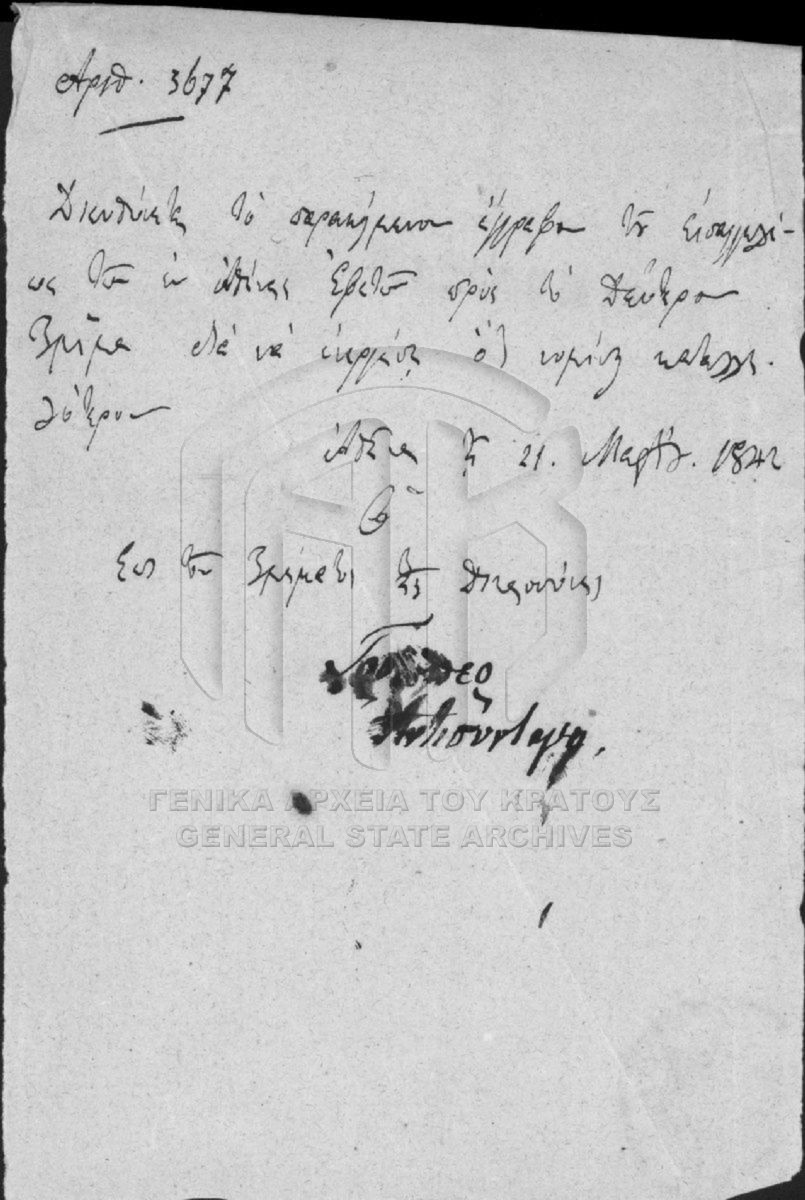 Αριθ. 3677
Διευθύνεται τὸ παρακείμενον ἔγγραφον τοῦ εἰσαγγελέ-
ως τῶν ἐν Ἀθήναις Ἐφετῶν πρὸς τὸ Δεύτερον
Τμῆμα διὰ νὰ ἐνεργήσῃ ὅ,τι νομίσῃ καταλλη-
λότερον
Ἀθῆναι τῇ 21. Μαρτίου. 1842
Ὁ
Ἐπὶ τοῦ Τμήματος τῆς Δικαιοσύνης
ΓΕΝΙΚΑ ΑΡΧΕΙΑ ΤΟΥ ΚΡΑΤΟΥΣ
GENERAL STATE ARCHIVES